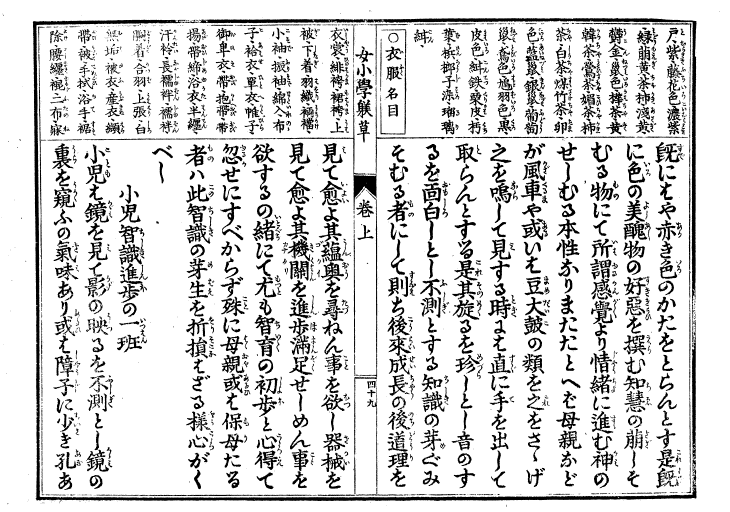 戸紫藤花色濃紫
緑萠黄茶柿淺黄
金巣色樺茶黄
韓茶鶯茶媚茶柿
茶白茶煤竹茶卯
色藍鼠銀鼠葡萄
鼠鳶色鳩羽色黒
皮色紺鉄栗皮朽
葉梹榔子染瑠璃
紺
○衣服名目
既にはや赤き色のかたをとらんとす是既
に色の美醜物の好惡を撰む知慧の萠しそ
むる物にて所謂感覺より情緒に進む神の
せしむる本性なりまたたとへば母親など
が風車や或いは豆大鼓の類を之をさゝげ
之を鳴して見する時には直に手を出して
取らんとする是其旋るを珍しとし音のす
るを面白しとし不測とする知識の芽ぐみ
そむる者にして則ち後來成長の後道理を
女小學躾草
卷上
四十九
衣裳緋袴裙袴上
被下着羽織襦
小袖振袖綿入布
子袷衣單衣帷子
御卑衣帶抱帶帶
揚帶締浴衣半纏
汗袗長襦袢襦袢
胴着合羽上張白
無垢被衣産衣纈
帶被手拭浴手裾
除腰纏裩二布寐
見て愈よ其蘊奥を尋ねん事を欲し器械を
見て愈よ其機關を進歩滿足せしめん事を
欲するの緒にて尤も智育の初歩と心得て
忽せにすべからず殊に母親或は保母たる
者ハ此智識の芽生を折損せざる樣心がく
べし
小児智識進歩の一班
小児は鏡を見て影の映るを不測とし鏡の
裏を窺ふの氣味あり或は障子に少き孔あ